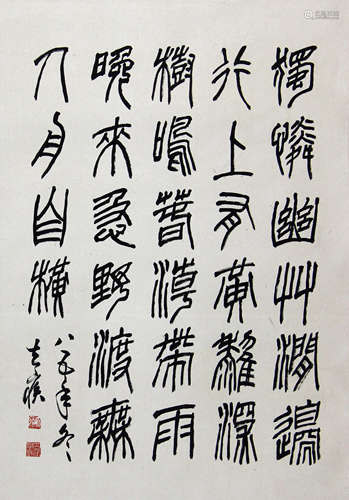 獨憐幽艸澗邊
行上有黃鸝深
樹鳴春潮帶雨
晚來急野渡無
人舟自橫
八五年冬